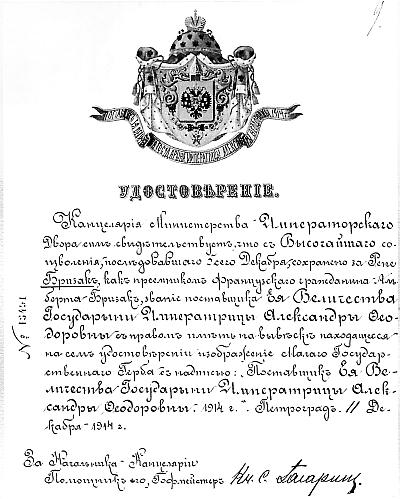 УДОСТОВѢРЕНІЕ.
Канцелярія Министерства Императорскаго
Двора симъ свидѣтельствуетъ, что съ Высочайшаго со-
изволенія, послѣдовавшаго 5сего Декабря, сохранено за Рене
Бризакъ, какъ преемникомъ французскаго гражданина Аль-
берта Бризакъ, званіе поставщика Ея Величества
Государыни Императрицы Александры Ѳео-
доровны съ правомъ имѣть на вывѣскѣ находящееся
на семъ удостовѣреніи изображеніе Малаго Государ-
ственнаго Герба съ надписью: „Поставщикъ Ея Ве-
личества Государыни Императрицы Алек-
сандры Ѳеодоровны 1914 г.". Петроградъ, 11 Де-
кабря 1914 г.
№ 13451
За Начальника Канцеляріи
Помощникъ его, Гофмейстеръ Кн. С. Гагаринъ